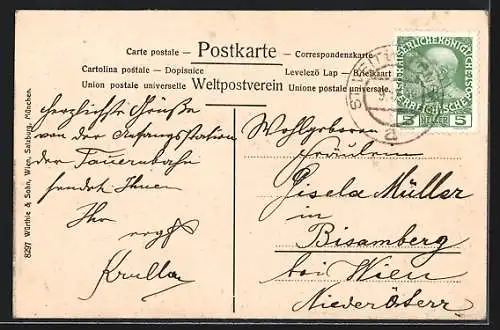 Carte postale — Postkarte — Correspondenzkarte
Cartolina postale — Dopisnice
Levelező Lap — Brielkaart
Union postale universelle Weltpostverein Unione postale universale.
KAISERLICHE KÖNIGLICHE
ÖSTERREICHISCHE POST
5 HELLER 5
8297 Würthle & Sohn, Wien, Salzburg, München.
Herzlichste Grüße
von der Anfangsstation
der Tauernbahn
sendet Ihnen
Ihr
ergst
Wohlgeboren
Fräulein
Gisela Müller
in
Bisamberg
bei Wien
Niederösterr.